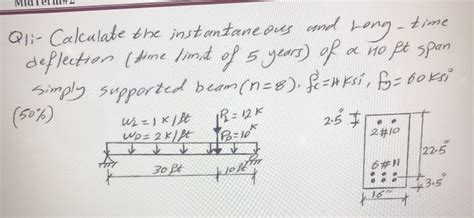 Midterm#2
Q1:- Calculate the instantaneous and Long-time
deflection (time limit of 5 years) of a 40 ft span
simply supported beam (n=8). fc=4 Ksi, fy= 60 Ksi
(50%)
WL = 1 K/ft
PL = 12 K
WD = 2 K/ft
PD = 10 K
30 ft
10 ft
2.5"
2#10
6#11
22.5"
3.5"
16"